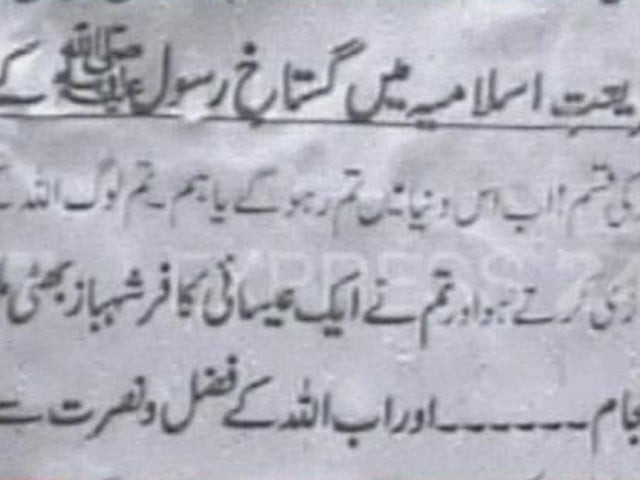 یعتِ اسلامیہ میں گستاخِ رسول ﷺ کے
کی قسم! اب اس دنیا میں تم رہو گے یا ہم۔ تم لوگ اللہ کے
کرتے ہو اور تم نے ایک عیسائی کافر شہباز بھٹی
جام ------ اور اب اللہ کے فضل و نصرت سے
EXPRESS 24